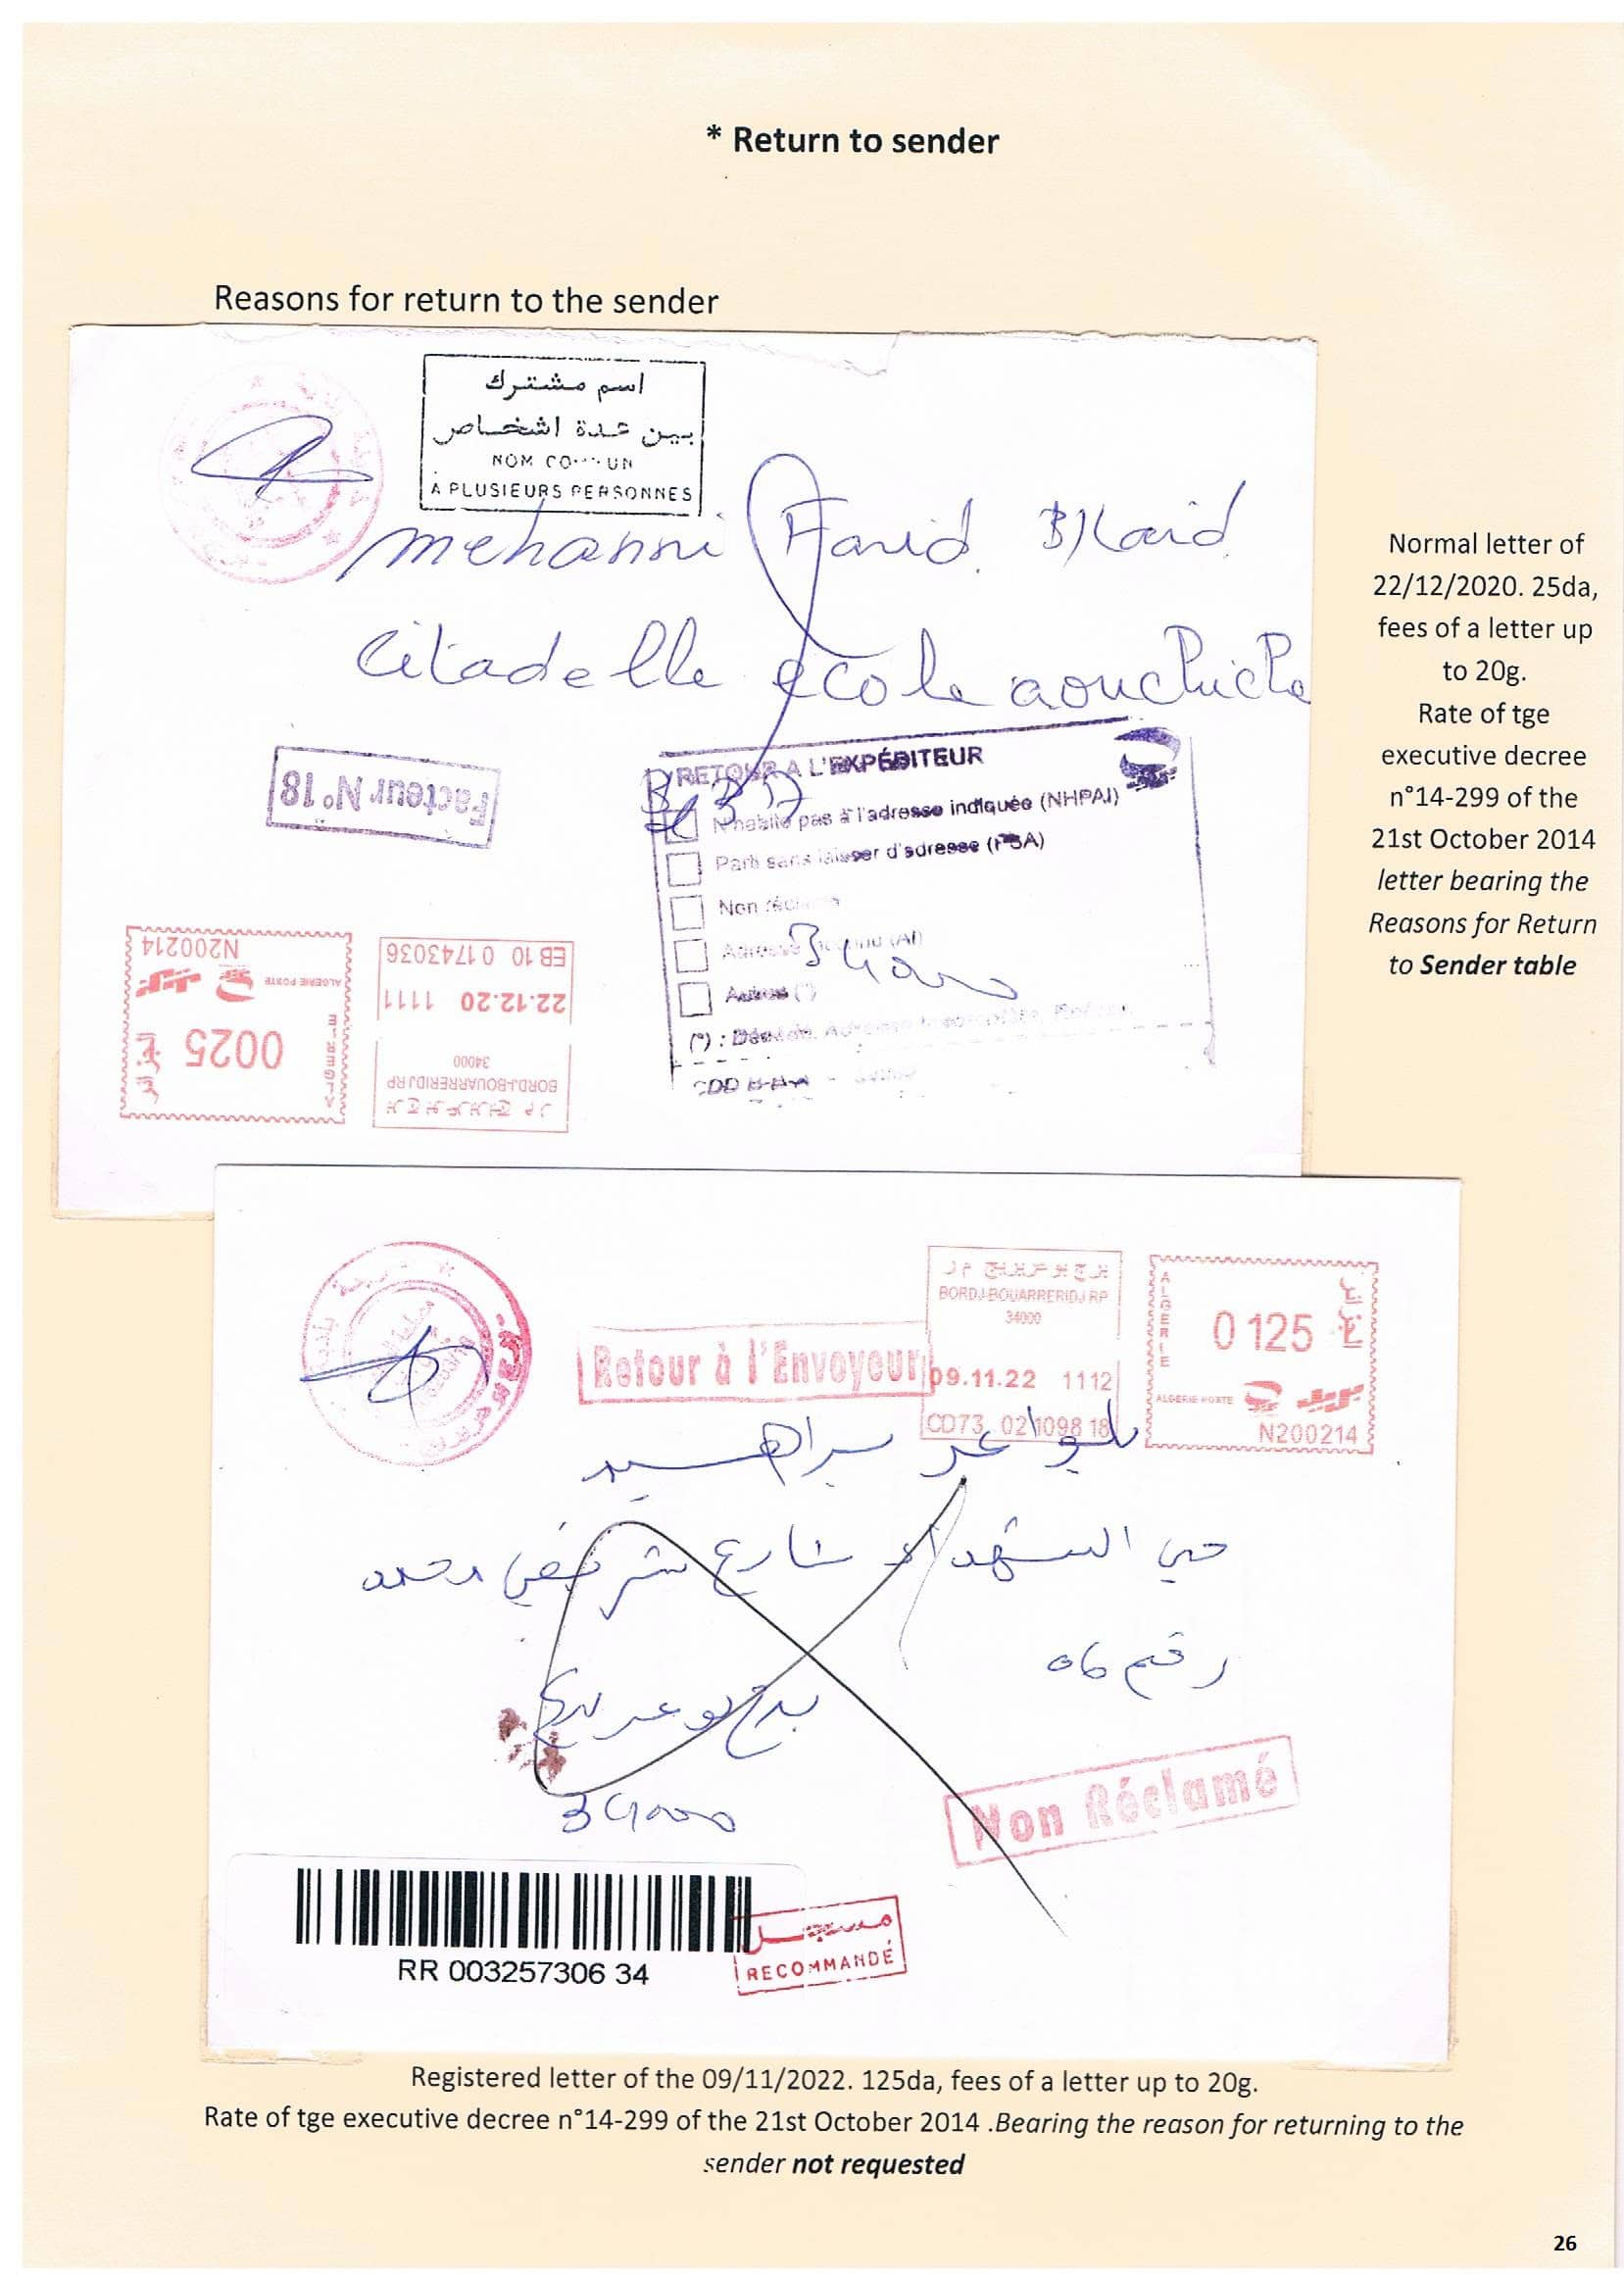 * Return to sender
Reasons for return to the sender
اسم مشترك
بين عدة اشخاص
NOM COMMUN
A PLUSIEURS PERSONNES
Mehanni Farid
Citadelle école aouchiche
Facteur N° 18
RETOUR A L'EXPÉDITEUR
N'habite pas à l'adresse indiquée (NHPAI)
Parti sans laisser d'adresse (PSA)
Non
Adresse (AI)
Autres (*)
(*) :
34000
N200214
ALGERIE POSTE
0025
EB 10 0 1743036
22.12.20 1111
34000
BORDJ-BOUARRERIDJ RP
Normal letter of
22/12/2020. 25da,
fees of a letter up
to 20g.
Rate of tge
executive decree
n°14-299 of the
21st October 2014
letter bearing the
Reasons for Return
to Sender table
BORDJ-BOUARRERIDJ RP
34000
09.11.22 1112
CD73 02 1098 18
ALGERIE
0125
ALGERIE POSTE
N200214
Retour à l'Envoyeur
حي الشهداء شارع محمد
رقم 06
34000
Non Réclamé
RR 003257306 34
مسجل
RECOMMANDÉ
Registered letter of the 09/11/2022. 125da, fees of a letter up to 20g.
Rate of tge executive decree n°14-299 of the 21st October 2014 .Bearing the reason for returning to the
sender not requested
26